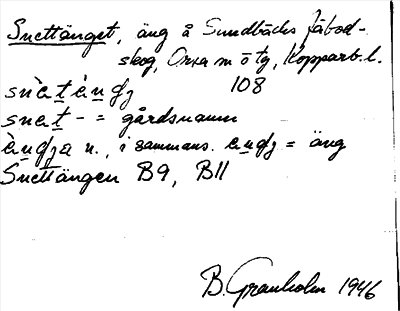 Snettänget, äng å Sundbäcks fäbod-
skog, Orsa m ö tg, Kopparb. l.
108
snet - = gårdsnamn
n., i sammans. = äng
Snettängen B9, B11
B. Granholm 1946